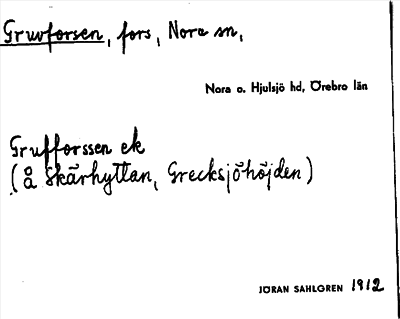 Gruvforsen, fors, Nora sn,
Nora o. Hjulsjö hd, Örebro län
Grufforssen ek
(å Skärhyttan, Grecksjöhöjden)
JÖRAN SAHLGREN 1912